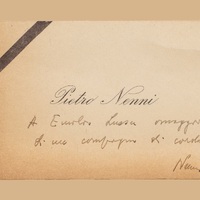 Pietro Nenni
A Emilio Lussu omaggio
di un compagno di